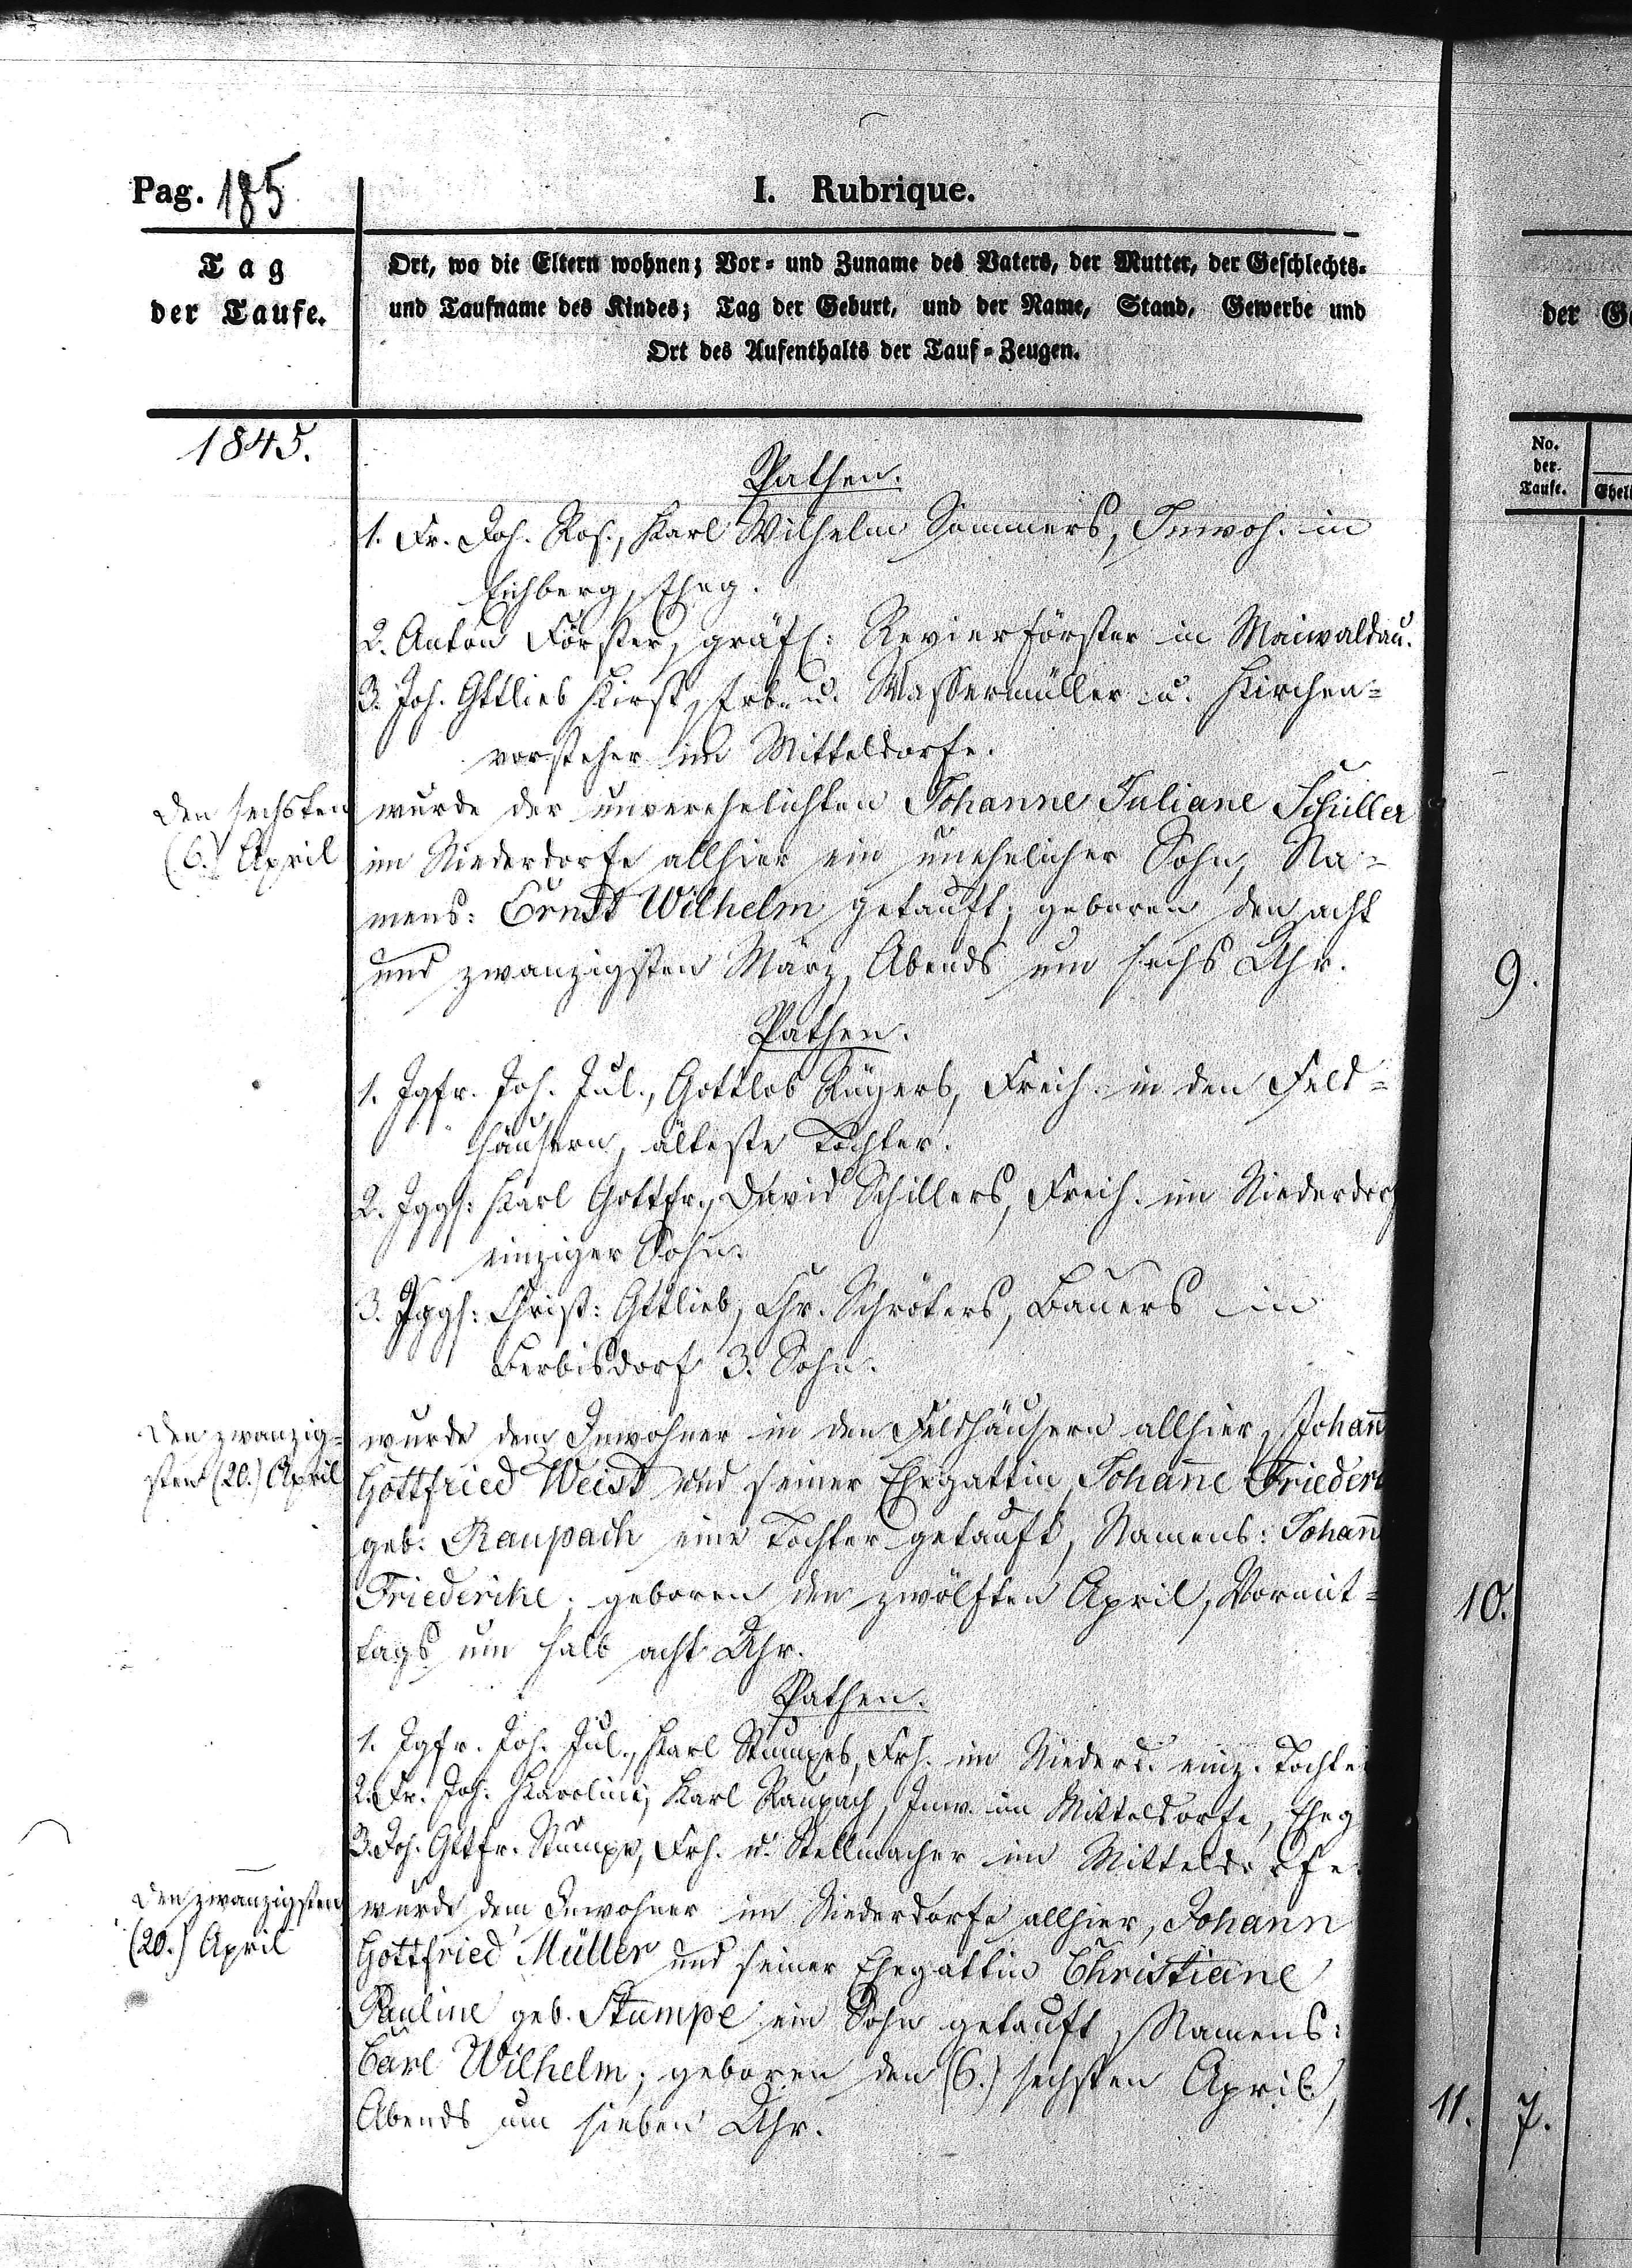 Pag. 185
I. Rubrique.
Tag
der Taufe.
Ort, wo die Eltern wohnen; Vor- und Zuname des Vaters, der Mutter, der Geschlechts-
und Taufname des Kindes; Tag der Geburt, und der Name, Stand, Gewerbe und
Ort des Aufenthalts der Tauf-Zeugen.
der Ge
No.
der
Taufe.
Ehel
1845.
Pathen.
1. Fr. Joh. Ros., Karl Wilhelm Sommers, Inwoh. in
Eichberg, Eheg.
2. Anton Förster, gräfl: Revierförster in Maiwaldau.
3. Joh. Gttlieb Hirst, Erb- u. Wassermüller u. Kirchen=
vorsteher im Mitteldorfe.
Den sechsten
(6.) April
wurde der unverehelichten Johanne Juliane Schiller
im Niederdorfe allhier ein unehelicher Sohn, Na=
mens: Ernst Wilhelm getauft; geboren den acht
und zwanzigsten März, Abends um sechs Uhr.
9.
Pathen.
1. Jgfr. Joh. Jul., Gottlob Rügers, Freih. in den Feld=
häusern, älteste Tochter.
2. Jggs: Karl Gottfr., David Schillers, Freih. im Niederdorf
einziger Sohn.
3. Jggs: Christ: Gttlieb, Chr. Schröters, Bauers in
Berbisdorf 3. Sohn.
Den zwanzig=
sten (20.) April
wurde dem Inwohner in den Feldhäusern allhier, Johann
Gottfried Weist und seiner Ehegattin Johanne Frieder
geb. Raupach eine Tochter getauft, Namens: Johann
Friederike; geboren den zwölften April, Vormit=
tags um halb acht Uhr.
10.
Pathen.
1. Jgfr. Joh. Jul., Karl Stumpes, Frh. im Niederd. einz. Tochte
2. Fr. Joh. Karoline, Karl Raupach, Inw. im Mitteldorfe, Eheg
3. Joh. Gttfr. Stumpe, Frh. u. Stellmacher im Mitteldorfe.
Den zwanzigsten
(20.) April
wurde dem Inwohner im Niederdorfe allhier, Johann
Gottfried Müller und seiner Ehegattin Christiane
Pauline geb. Stumpe ein Sohn getauft, Namens:
Carl Wilhelm; geboren den (6.) sechsten April,
Abends um sieben Uhr.
11. 7.